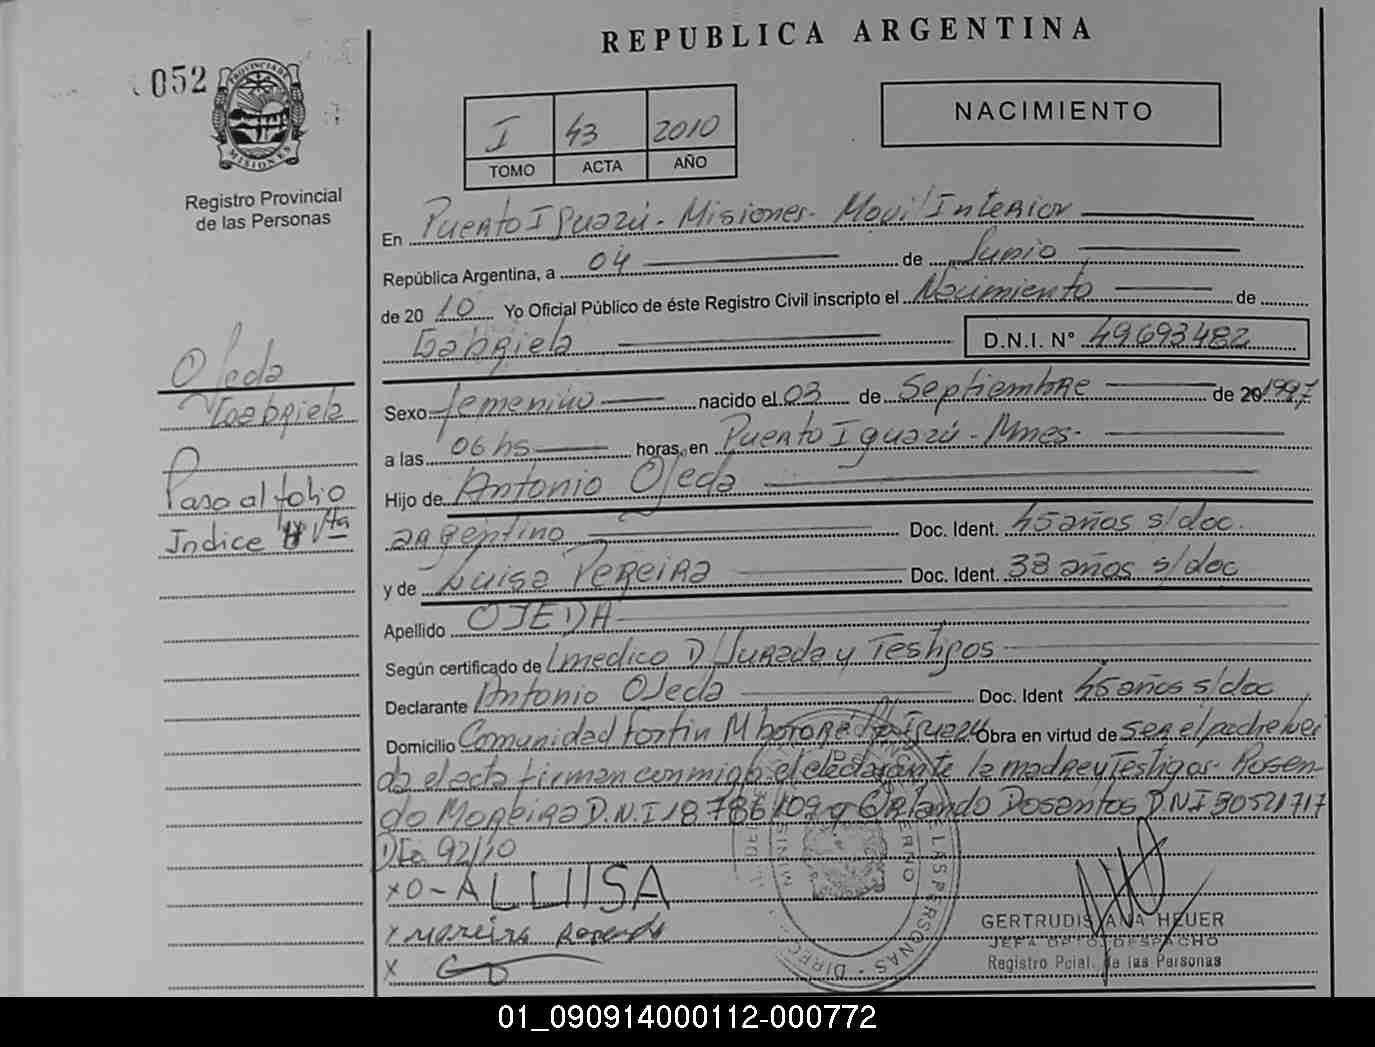 REPUBLICA ARGENTINA
052
PROVINCIA DE MISIONES
Registro Provincial
de las Personas
I 43 2010
TOMO ACTA AÑO
NACIMIENTO
En Puerto Iguazú - Misiones - Movil Interior
República Argentina, a 04 de Junio
de 2010 Yo Oficial Público de éste Registro Civil inscripto el Nacimiento de
Gabriela D.N.I. N° 49693482
Ojeda
Gabriela
Sexo femenino nacido el 03 de Septiembre de 20 1997
a las 06 hs horas, en Puerto Iguazú - Mnes -
Hijo de Antonio Ojeda
Paso al folio
Indice Vta
argentino Doc. Ident. 45 años s/doc.
y de Luisa Pereira Doc. Ident. 38 años s/doc
Apellido OJEDA
Según certificado de medico D/Jurada y Testigos
Declarante Antonio Ojeda Doc. Ident 45 años s/doc
Domicilio Comunidad Fortin Mbororé Iguazú Obra en virtud de ser el padre lei
da el acta firman conmigo el declarante la madre y Testigos - Rosen-
do Moreira D.N.I 18.786109 y Orlando Dosantos D.N.I 30521717
92/10
x O-A LUISA
x Moreira Rosendo
x
GERTRUDIS ANA HEUER
JEFA DPTO. DESPACHO
Registro Pcial. de las Personas
01_090914000112-000772